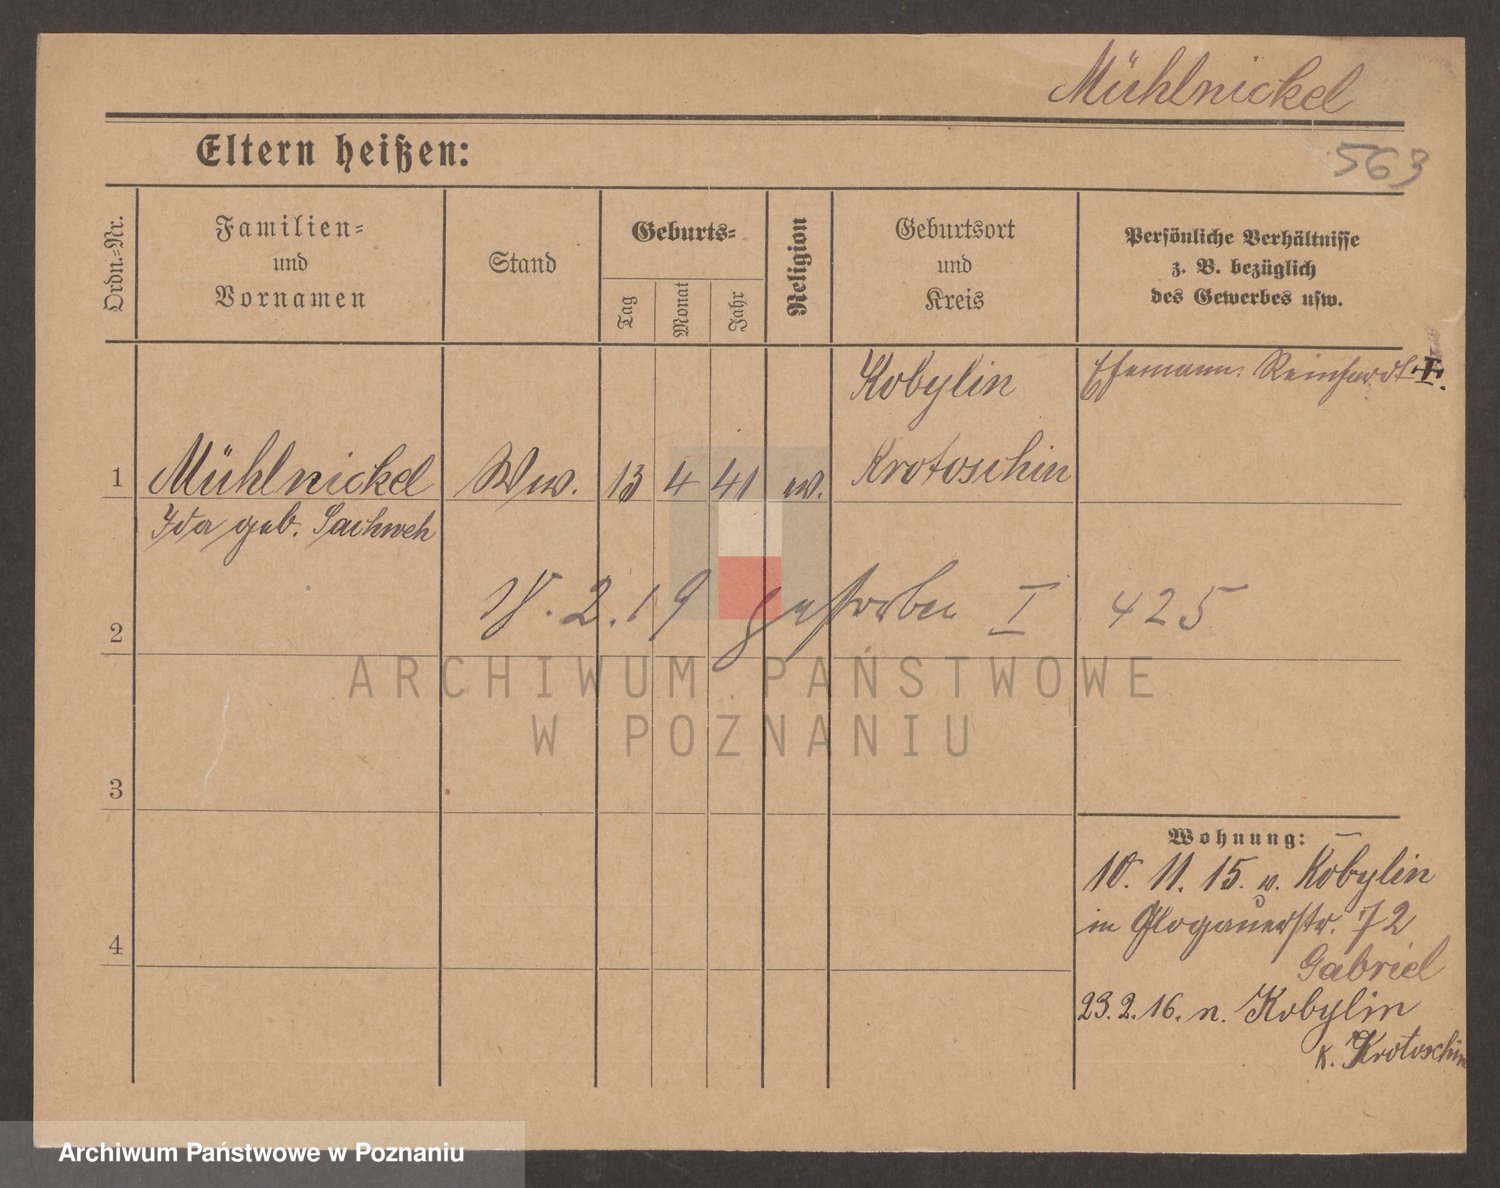 Mühlnickel
Eltern heißen:
563
Ordn.-Nr.
Familien-
und
Vornamen
Stand
Geburts-
Tag
Monat
Jahr
Religion
Geburtsort
und
Kreis
Persönliche Verhältnisse
z. B. bezüglich
des Gewerbes usw.
Kobylin
Ehemann: Reinhardt
1
Mühlnickel
Ww.
13
4
41
ev.
Krotoschin
Ida geb. Sachweh
2
2.19 gestorben I 425
ARCHIWUM PAŃSTWOWE
W POZNANIU
3
Wohnung:
10. 11. 15. v. Kobylin
in Glogauerstr. 72
4
Gabriel
23. 2. 16. n. Kobylin
K. Krotoschin
Archiwum Państwowe w Poznaniu